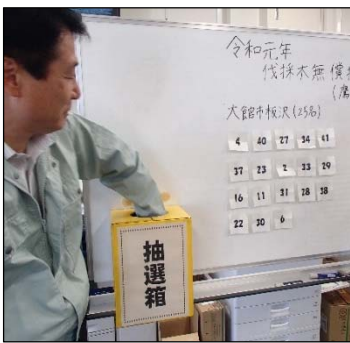 令和元年
伐採木無償
大館市板沢(25名)
4 40 27 34 41
37 23 2 33 29
16 11 31 28 38
22 30 6
抽選箱